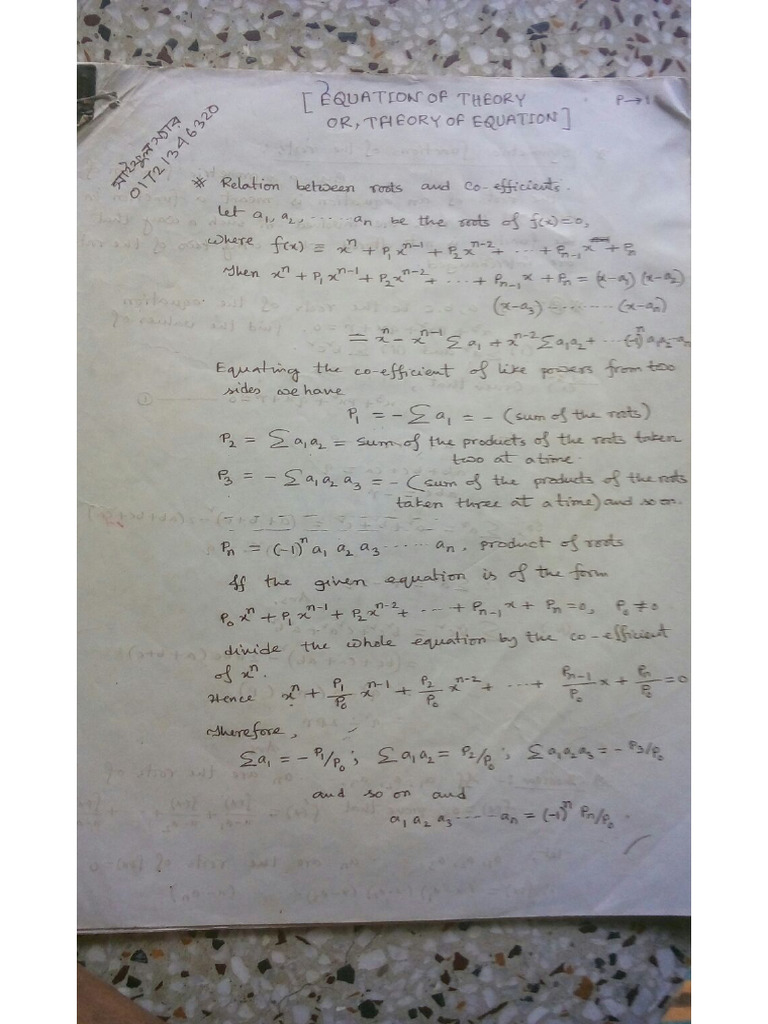 [EQUATION OF THEORY
P→1
OR, THEORY OF EQUATION]
01721346320
# Relation between roots and co-efficients.
Let a₁, a₂, ...... aₙ be the roots of f(x)=0,
where f(x) ≡ xⁿ + P₁xⁿ⁻¹ + P₂xⁿ⁻² + ... + Pₙ₋₁x + Pₙ
Then xⁿ + P₁xⁿ⁻¹ + P₂xⁿ⁻² + ... + Pₙ₋₁x + Pₙ = (x-a₁)(x-a₂)
(x-a₃) ........ (x-aₙ)
= xⁿ - xⁿ⁻¹ ∑a₁ + xⁿ⁻² ∑a₁a₂ + ... (-1)ⁿ a₁a₂-aₙ
Equating the co-efficient of like powers from two
sides we have
P₁ = - ∑a₁ = - (sum of the roots)
P₂ = ∑a₁a₂ = sum of the products of the roots taken
two at a time.
P₃ = - ∑a₁a₂a₃ = - (sum of the products of the roots
taken three at a time) and so on.
Pₙ = (-1)ⁿ a₁ a₂ a₃ ...... aₙ, product of roots
If the given equation is of the form
P₀xⁿ + P₁xⁿ⁻¹ + P₂xⁿ⁻² + ... + Pₙ₋₁x + Pₙ = 0, P₀ ≠ 0
divide the whole equation by the co-efficient
of xⁿ.
Hence xⁿ + P₁/P₀ xⁿ⁻¹ + P₂/P₀ xⁿ⁻² + ... + Pₙ₋₁/P₀ x + Pₙ/P₀ = 0
Therefore,
∑a₁ = - P₁/P₀; ∑a₁a₂ = P₂/P₀; ∑a₁a₂a₃ = - P₃/P₀
and so on and
a₁ a₂ a₃ ----- aₙ = (-1)ⁿ Pₙ/P₀.